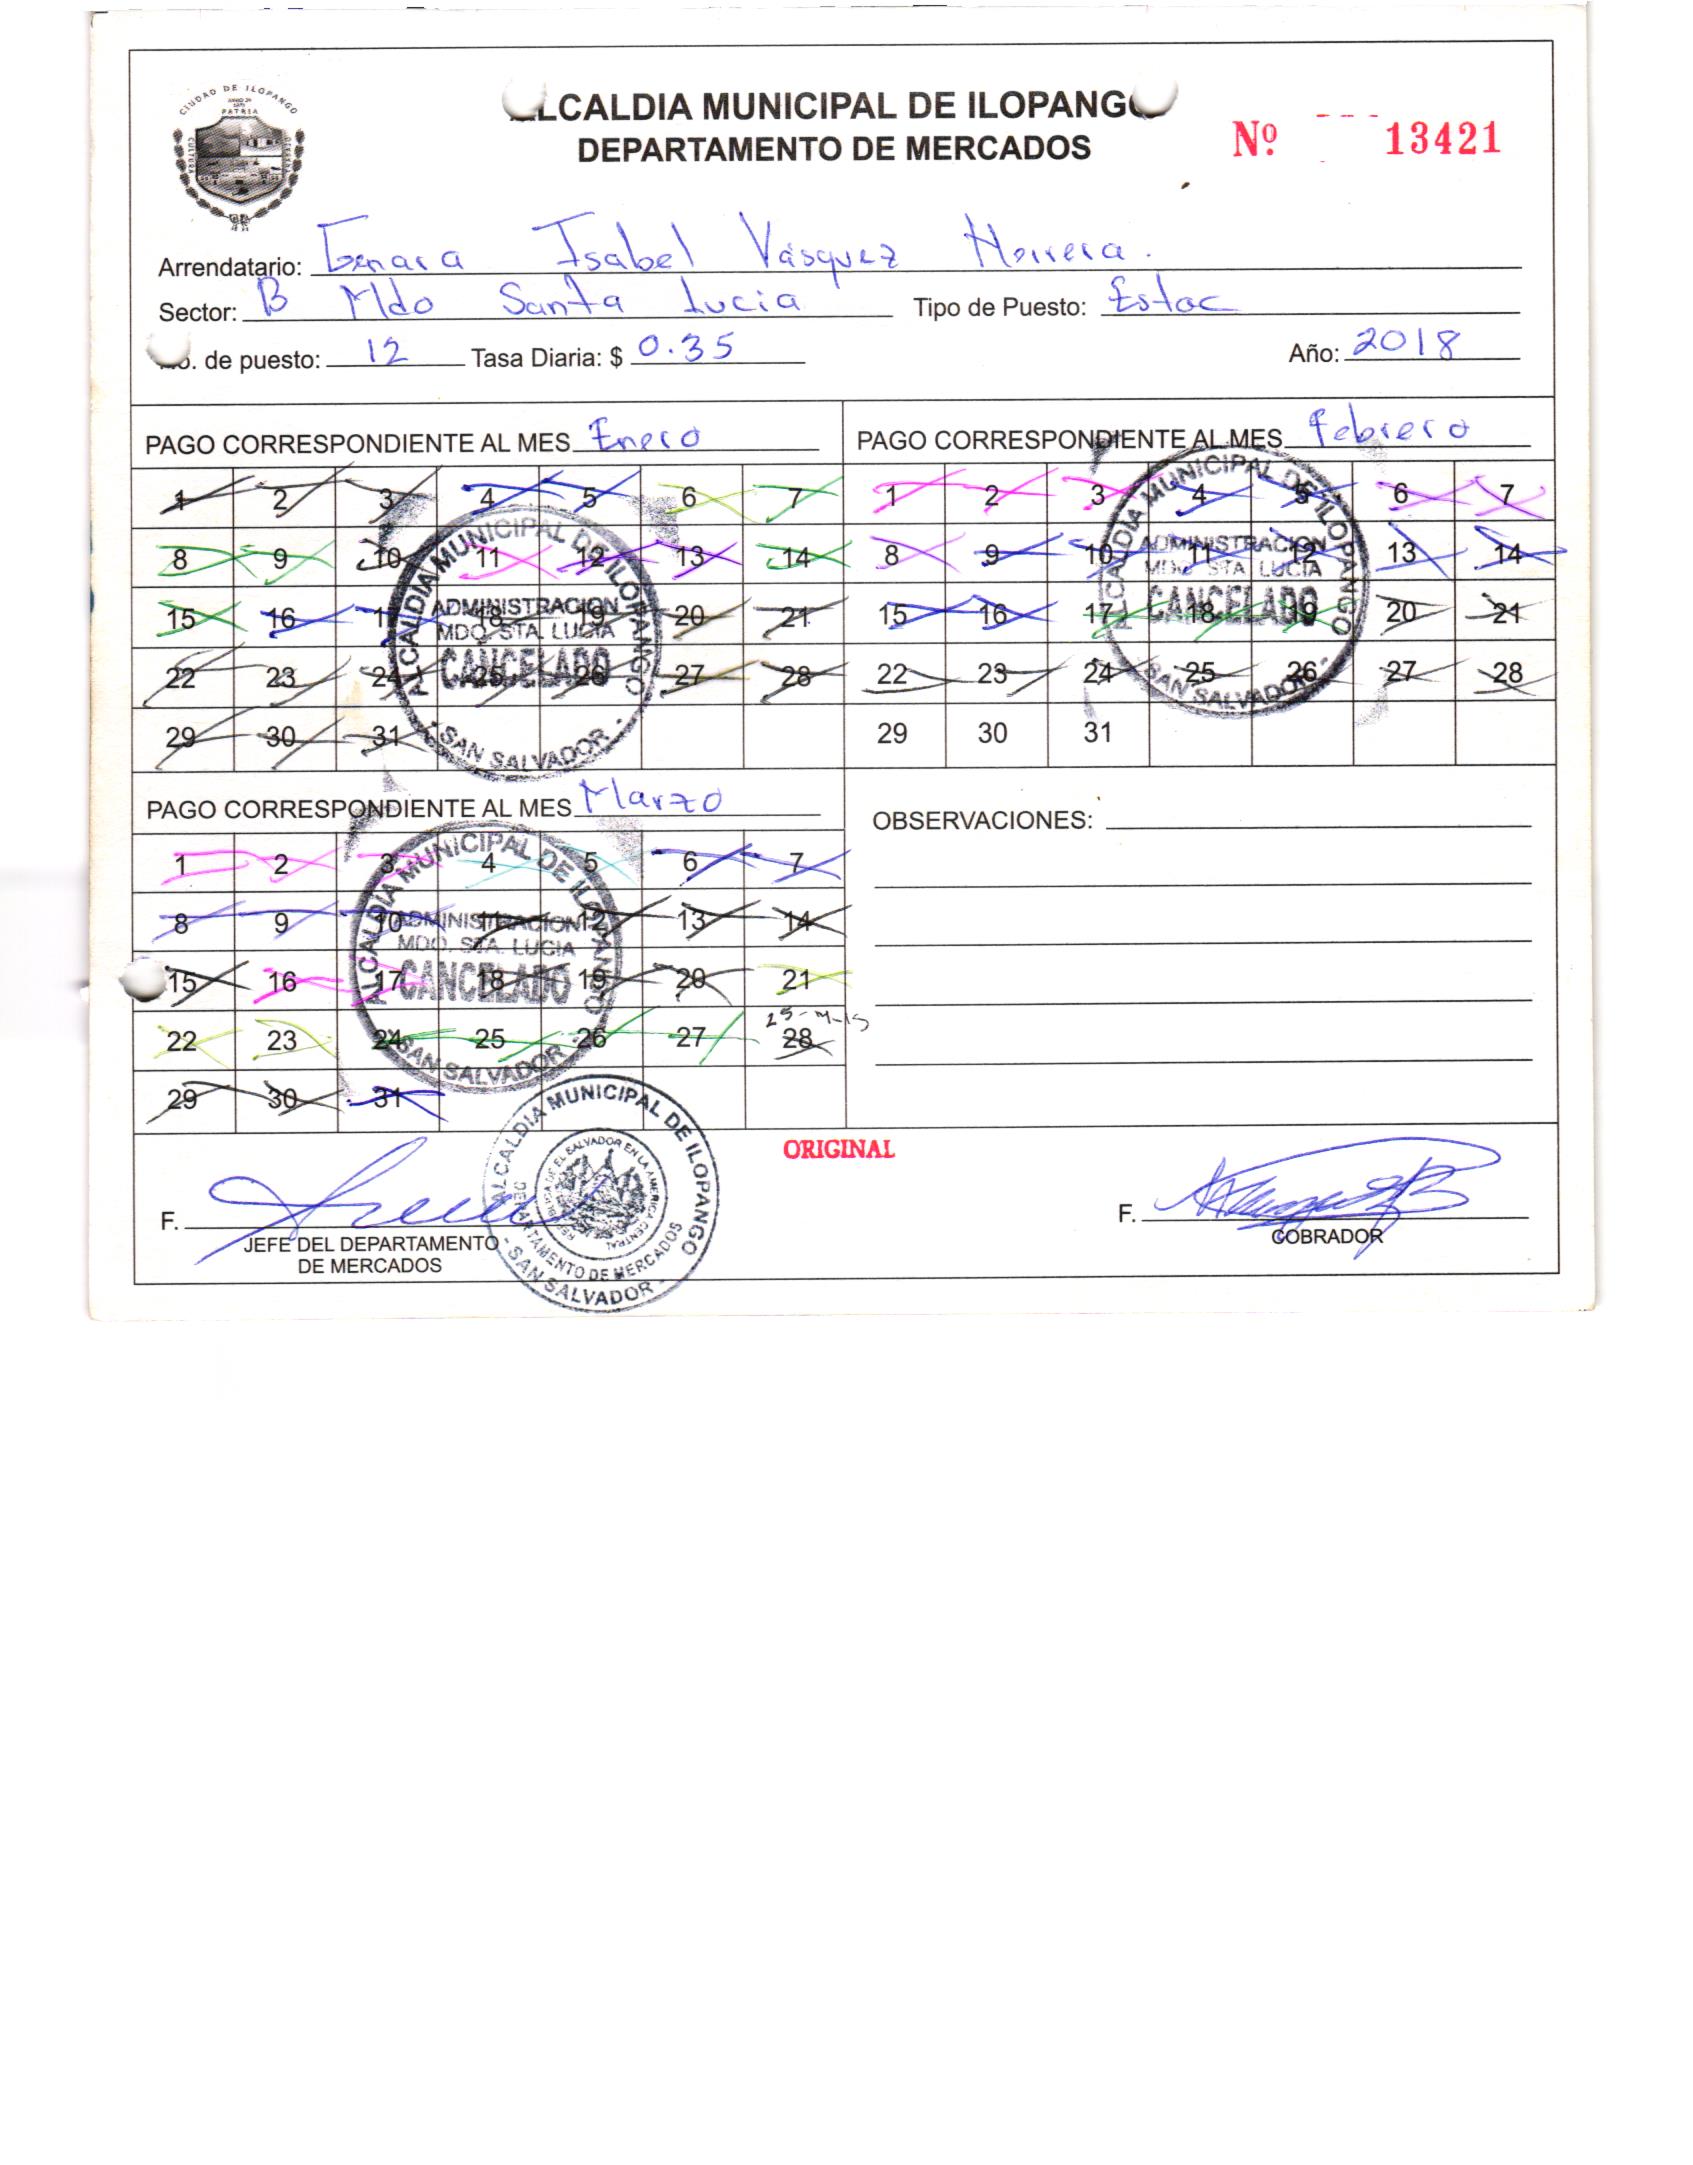 CIUDAD DE ILOPANGO
PATRIA
CULTURA
ALCALDIA MUNICIPAL DE ILOPANGO
DEPARTAMENTO DE MERCADOS
Nº 13421
Arrendatario: Genara Isabel Vásquez Herrera.
Sector: B Mdo Santa Lucia Tipo de Puesto: Estac
No. de puesto: 12 Tasa Diaria: $ 0.35 Año: 2018
PAGO CORRESPONDIENTE AL MES Enero
1 2 3 4 5 6 7
8 9 10 11 12 13 14
15 16 17 18 19 20 21
22 23 24 25 26 27 28
29 30 31
ALCALDIA MUNICIPAL DE ILOPANGO
ADMINISTRACION
MDO. STA. LUCIA
CANCELADO
- SAN SALVADOR -
PAGO CORRESPONDIENTE AL MES Febrero
1 2 3 4 5 6 7
8 9 10 11 12 13 14
15 16 17 18 19 20 21
22 23 24 25 26 27 28
29 30 31
ALCALDIA MUNICIPAL DE ILOPANGO
ADMINISTRACION
MDO. STA. LUCIA
CANCELADO
- SAN SALVADOR -
PAGO CORRESPONDIENTE AL MES Marzo
1 2 3 4 5 6 7
8 9 10 11 12 13 14
15 16 17 18 19 20 21
22 23 24 25 26 27 28
29 30 31
ALCALDIA MUNICIPAL DE ILOPANGO
ADMINISTRACION
MDO. STA. LUCIA
CANCELADO
- SAN SALVADOR -
OBSERVACIONES:
ORIGINAL
F.
JEFE DEL DEPARTAMENTO
DE MERCADOS
ALCALDIA MUNICIPAL DE ILOPANGO
REPUBLICA DE EL SALVADOR EN LA AMERICA CENTRAL
DEPARTAMENTO DE MERCADOS
- SAN SALVADOR -
F.
COBRADOR